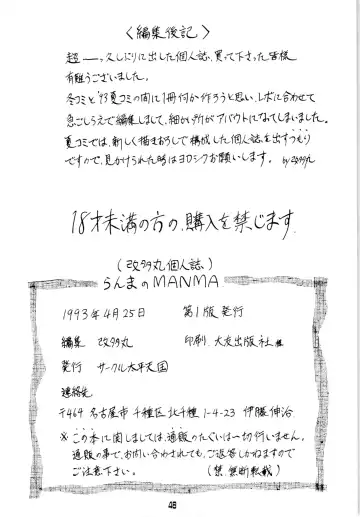 〈編集後記〉
超ーっ久しぶりに出した個人誌、買って下さった皆様
有難うございました。
冬コミと'93夏コミの間に1冊何か作ろうと思い、レボに合わせて
急ごしらえで編集しまして、細かい所がアバウトになってしまいました。
夏コミでは、新しく描きおろしで構成した個人誌を出すつもり
ですので、見かけられた時はヨロシクお願いします。 by改多丸
18才未満の方の、購入を禁じます
(改多丸個人誌)
らんまのMANMA
1993年4月25日 第1版発行
編集 改多丸 印刷 大友出版社
発行 サークル太平天国
連絡先
〒464 名古屋市千種区北千種1-4-23 伊藤伸治
※この本に関しましては、通販のたぐいは一切行いません。
通販の事で、お問い合わされても、ご返答しかねますので
ご注意下さい。 (禁 無断転載)
48